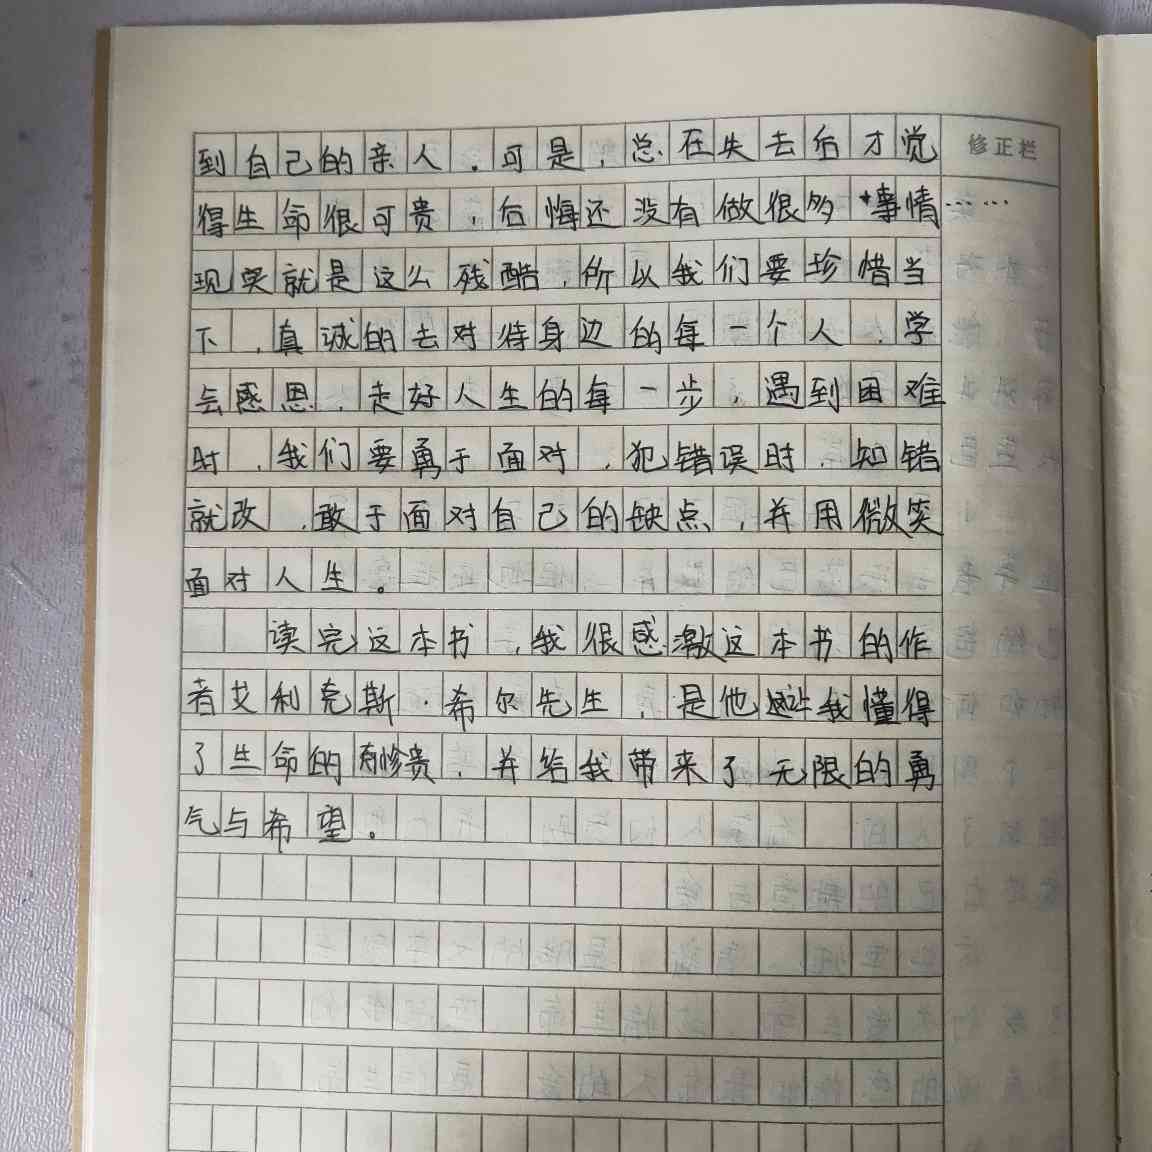 到自己的亲人。可是，总在失去后才觉
修正栏
得生命很可贵，后悔还没有做很多事情……
现实就是这么残酷，所以我们要珍惜当
下，真诚的去对待身边的每一个人，学
会感恩，走好人生的每一步，遇到困难
时，我们要勇于面对，犯错误时，知错
就改，敢于面对自己的缺点，并用微笑
面对人生。
读完这本书，我很感激这本书的作
者艾利克斯·希尔先生，是他让我懂得
了生命的珍贵，并给我带来了无限的勇
气与希望。